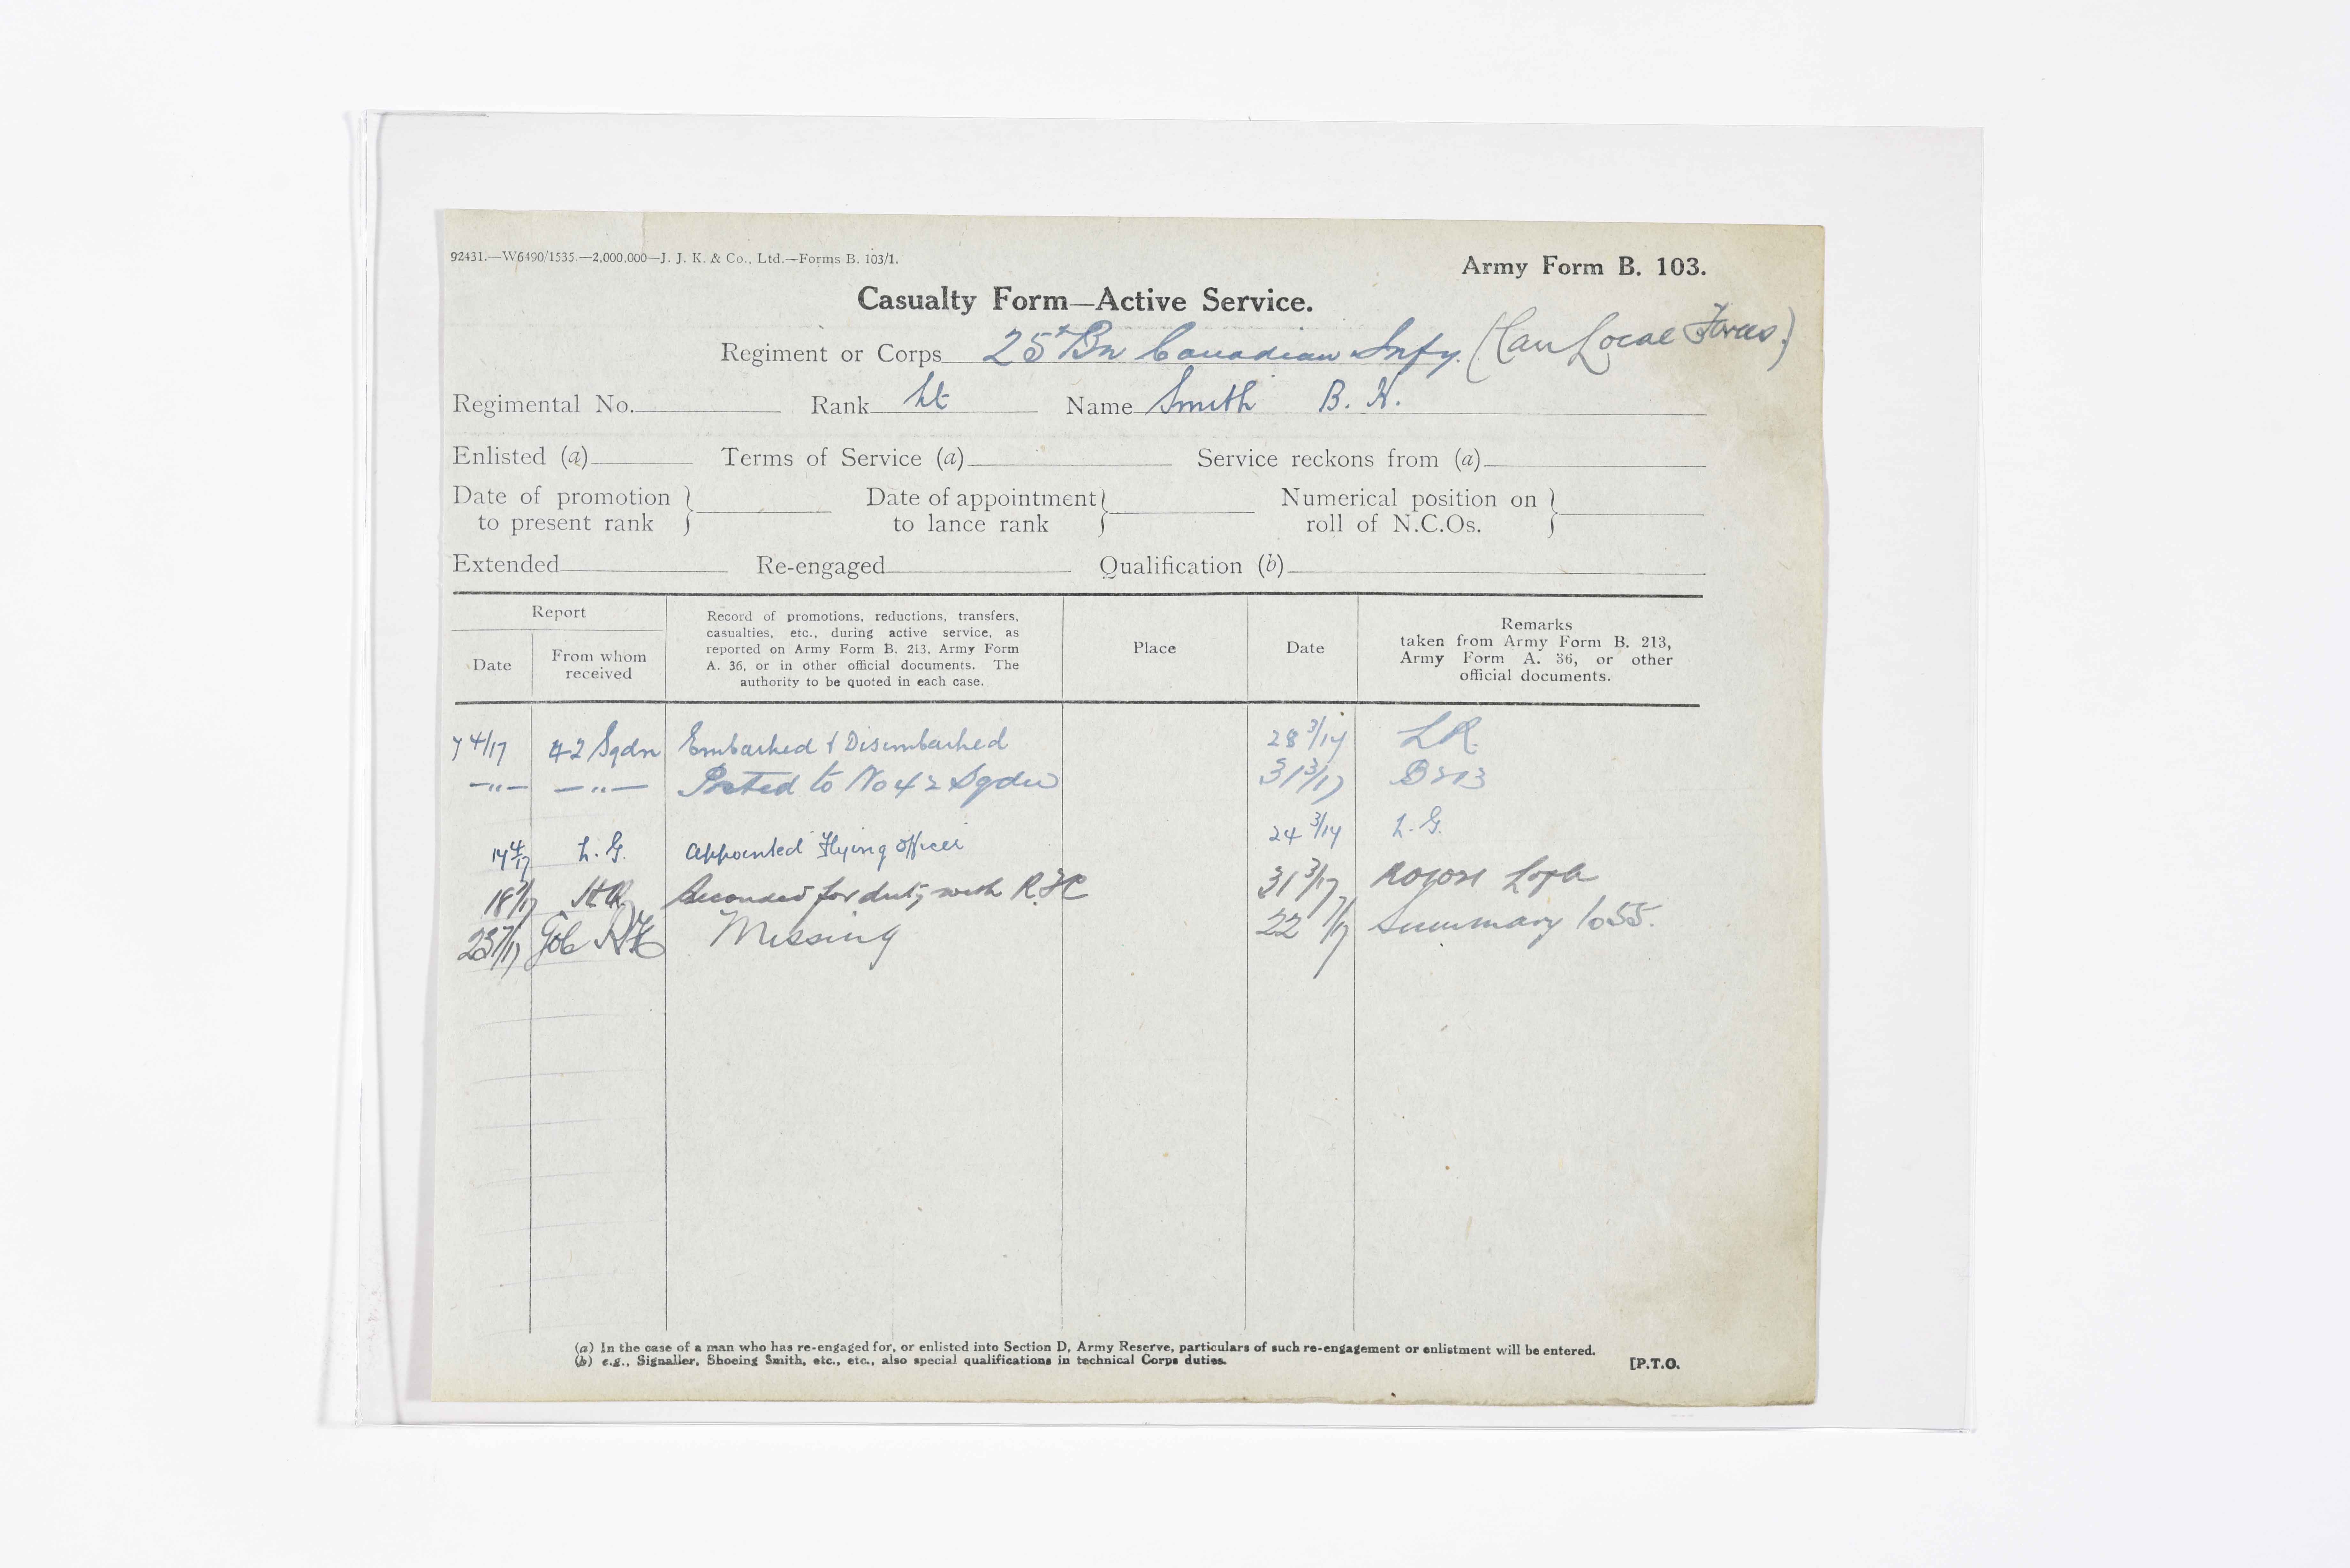 92431.—W6490/1535.—2,000,000—J. J. K. & Co., Ltd.—Forms B. 103/1.
Army Form B. 103.
Casualty Form—Active Service.
Regiment or Corps 25th Bn Canadian Infy. (Can Local Forces)
Regimental No. Rank Lt Name Smith B. H.
Enlisted (a) Terms of Service (a) Service reckons from (a)
Date of promotion to present rank } Date of appointment to lance rank } Numerical position on roll of N.C.Os. }
Extended Re-engaged Qualification (b)
Report
Date
From whom received
Record of promotions, reductions, transfers,
casualties, etc., during active service, as
reported on Army Form B. 213, Army Form
A. 36, or in other official documents. The
authority to be quoted in each case.
Place
Date
Remarks
taken from Army Form B. 213,
Army Form A. 36, or other
official documents.
7 4/17 42 Sqdn Embarked & Disembarked 28 3/17 LR.
—"— —"— Posted to No 42 Sqdn 31 3/17 B213
17 4/17 L. G. Appointed Flying Officer 24 3/17 L. G.
Seconded for duty with R.F.C 31 3/17
23 7/17 GOC RFC Missing 22 7/17 Summary 1055.
(a) In the case of a man who has re-engaged for, or enlisted into Section D, Army Reserve, particulars of such re-engagement or enlistment will be entered.
(b) e.g., Signaller, Shoeing Smith, etc., etc., also special qualifications in technical Corps duties.
[P.T.O.